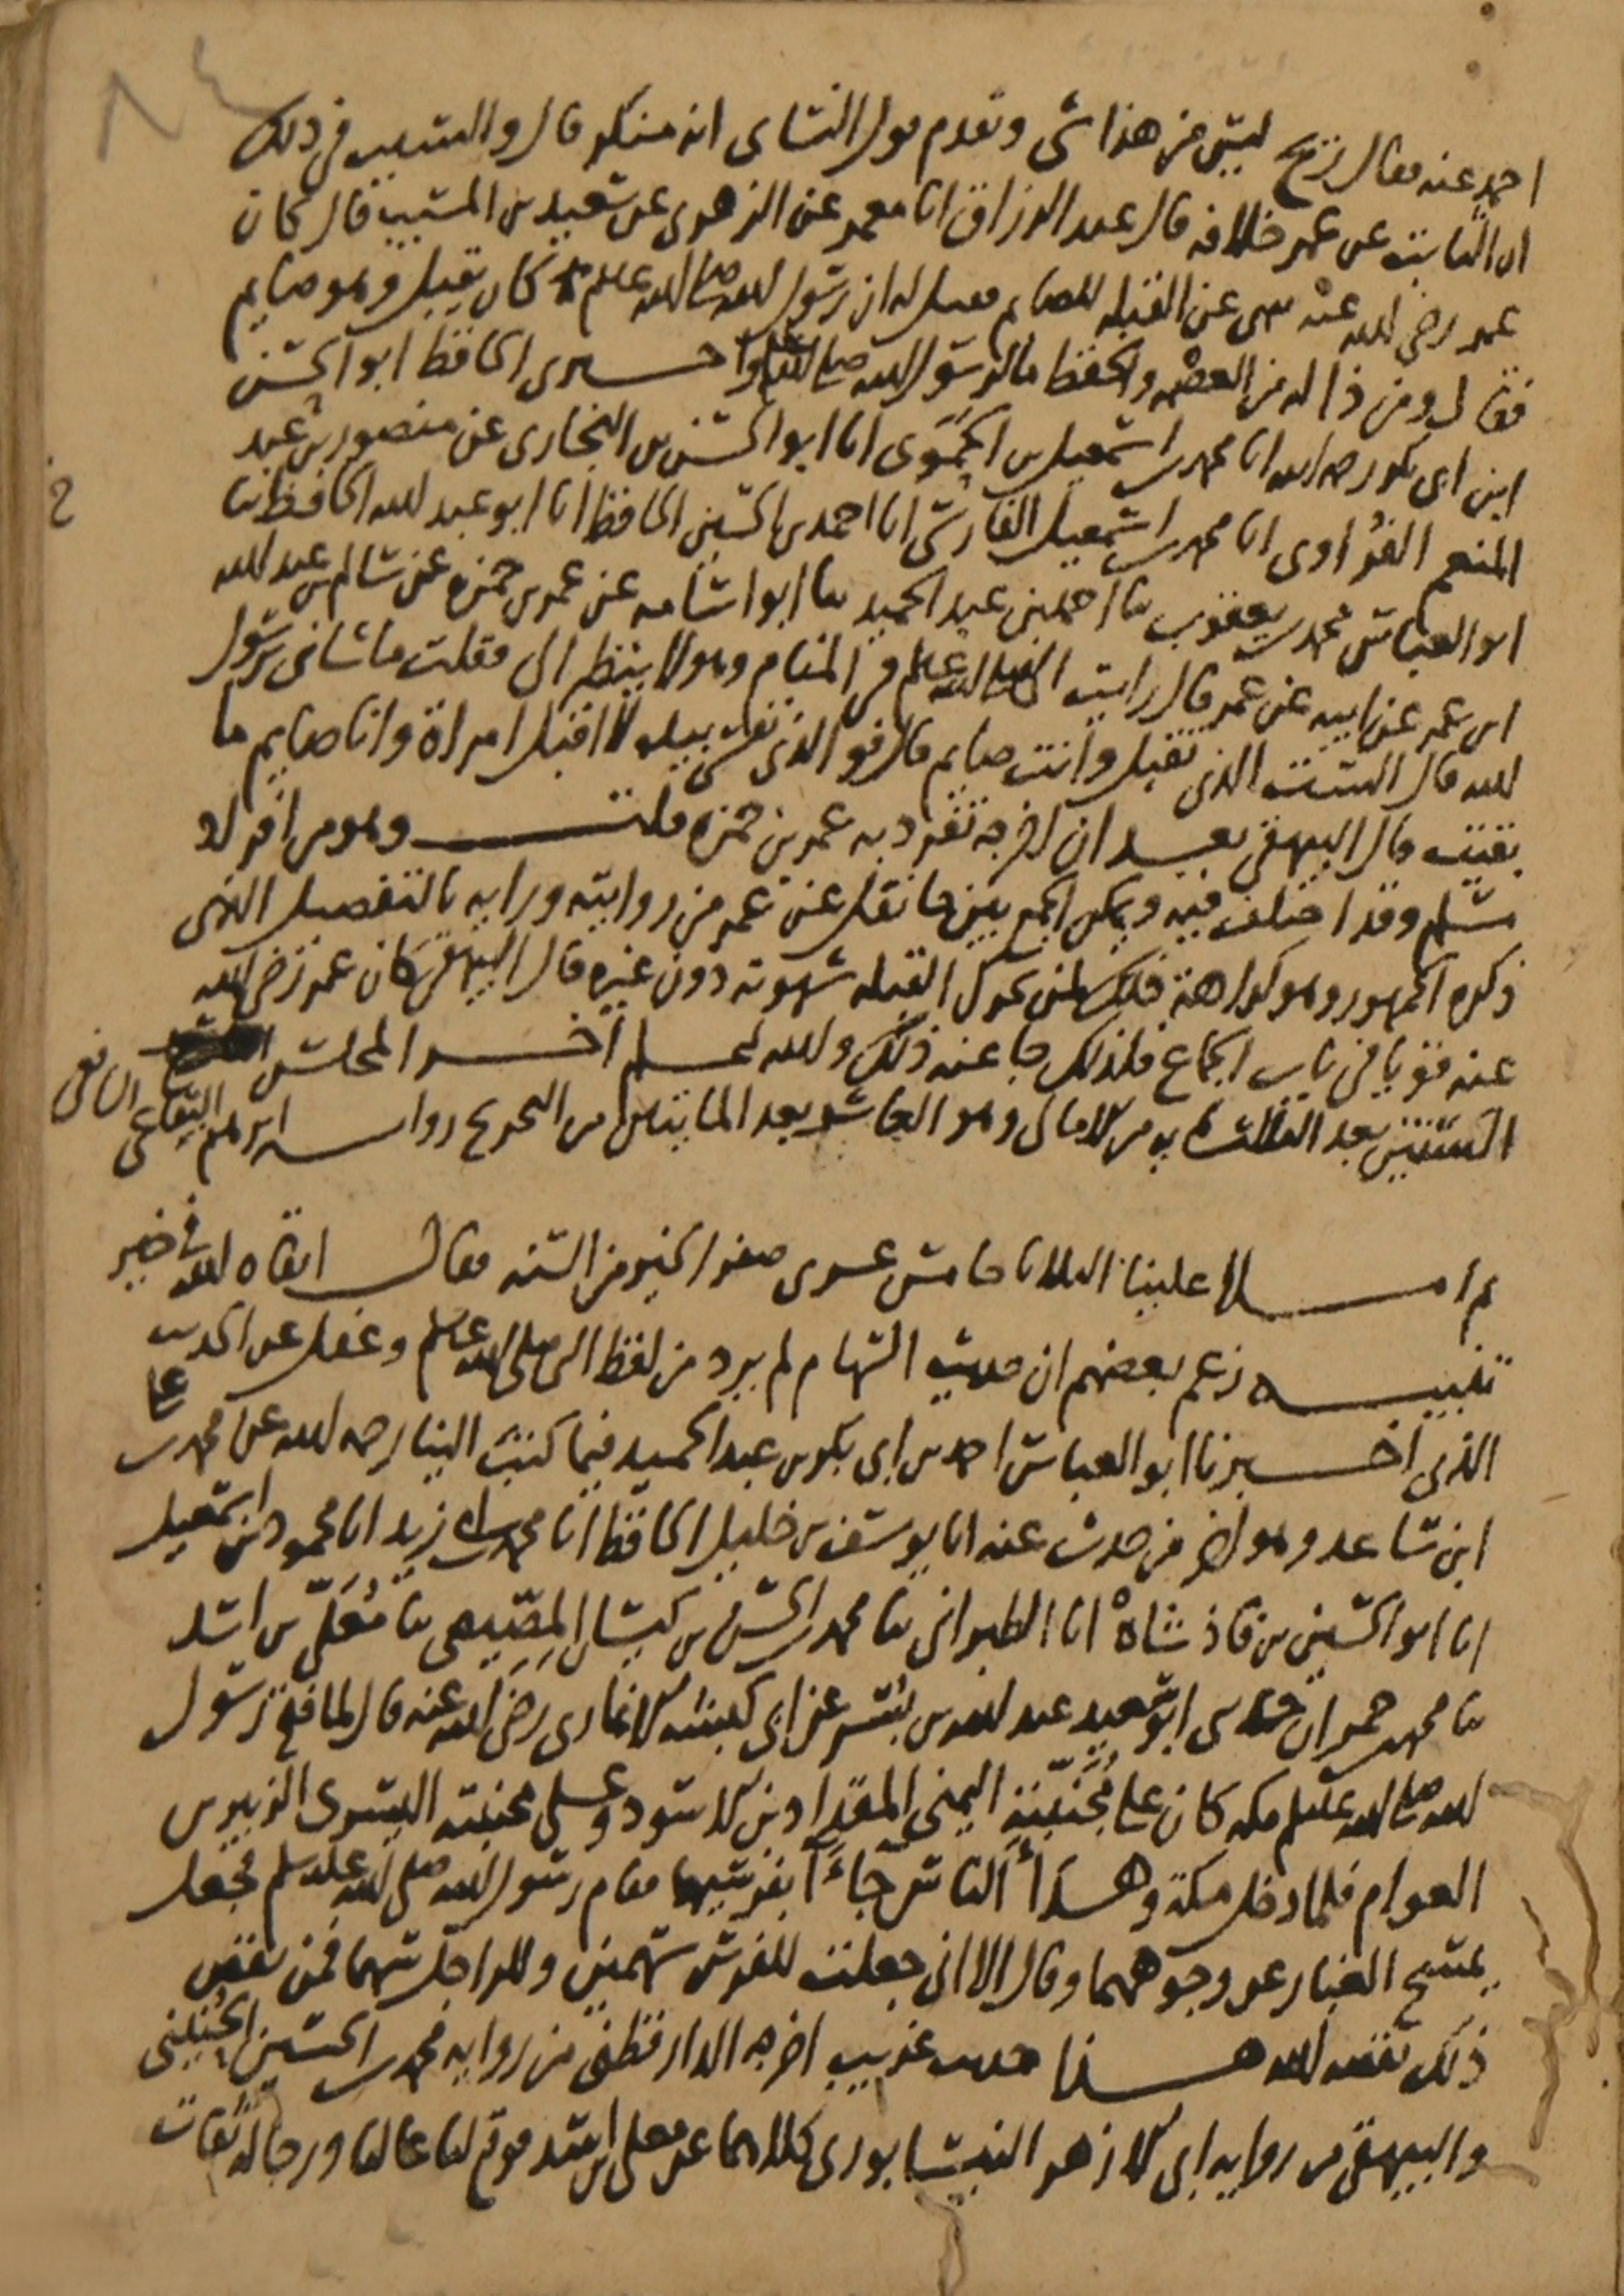 ٨٤
احمد عنه فقال ريح ليس من هذا شي وتقدم قول النسائي انه منكر قال والسبب في ذلك
ان الثابت عن عمر خلافه قال عبد الرزاق انا معمر عن الزهري عن سعيد بن المسيب قال كان
عمر رضي الله عنه ينهى عن القبله للصايم فقيل له ان رسول الله صلى الله عليه وسلم كان يقبل وهو صايم
فقال ومن ذا له من العصمه والحفظ ما لرسول الله صلى الله عليه وسلم اخبرني الحافظ ابو الحسن
ابن ابي بكر رحمه الله انا محمد بن اسمعيل بن الحموي انا ابو الحسن بن البخاري عن منصور بن عبد
المنعم الفُراوي انا محمد بن اسمعيل الفارسي انا احمد بن الحسين الحافظ انا ابو عبد الله الحافظ ثنا
ابو العباس محمد بن يعقوب ثنا احمد بن عبد الحميد ثنا ابو اسامه عن عمر بن حمزه عن سالم بن عبد الله
ابن عمر عن ابيه عن عمر قال رايت النبي صلى الله عليه وسلم في المنام وهو لا ينظر الي فقلت ما شاني يرسول
الله قال الست الذي تقبل وانت صايم قال فو الذي نفسي بيده لا اقبل امراة وانا صايم ما
بقيت قال البيهقي بعد ان اخرجه تفرد به عمر بن حمزه قلت وهو من افراد
مسلم وقد اختلف فيه ويمكن الجمع بين ما نقل عن عمر من روايته ورايه بالتفصيل الذي
ذكره الجمهور وهو كراهة ذلك لمن تحرك القبله شهوته دون غيره قال البيهقي كان عمر رضي الله
عنه قويا في باب الجماع فلذلك جا عنه ذلك والله اعلم اخر المجلس
الستين بعد الثلثمايه من الامالي وهو العاشر بعد المايتين من التخريج رواية ابرهيم البقاعي الشافعي
ثم املا علينا الثلاثا خامس عشري صفر الخير من السنه فقال ابقاه الله في خير
تنبيه زعم بعضهم ان حديث السهام لم يرد من لفظ النبي صلى الله عليه وسلم وغفل عن الحديث
الذي اخبرنا ابو العباس احمد بن ابي بكر بن عبد الحميد فيما كتب الينا رحمه الله عن محمد بن علي
ابن ساعد وهو اخر من حدث عنه انا يوسف بن خليل الحافظ انا محمد بن ابي زيد انا محمود بن اسمعيل
انا ابو الحسين بن فاذشاهْ انا الطبراني ثنا محمد بن الحسن بن كيسان المِصّيصي ثنا مُعَلّى بن اسد
ثنا محمد بن حمران حدثني ابو سعيد عبد الله بن بُسْر عن ابي كبشه الانماري رضي الله عنه قال لما فتح رسول
الله صلى الله عليه وسلم مكه كان على مُجَنِّبَته اليمنى المقداد بن الاسود وعلى مجنبته اليسرى الزبير بن
العوام فلما دخل مكة وهدأ الناس جاءآ بفرسيهما فقام رسول الله صلى الله عليه وسلم فجعل
يمسح الغبار عن وجوههما وقال الا اني جعلت للفرس سهمين وللراجل سهما فمن نقص
ذلك نقصه الله هذا حديث غريب اخرجه الدارقطني من رواية محمد بن الحسين الحُنَيني
والبيهقي من روايه ابي الازهر النيسابوري كلاهما عن معلى بن اسد فوقع لنا عاليا ورجاله ثقات